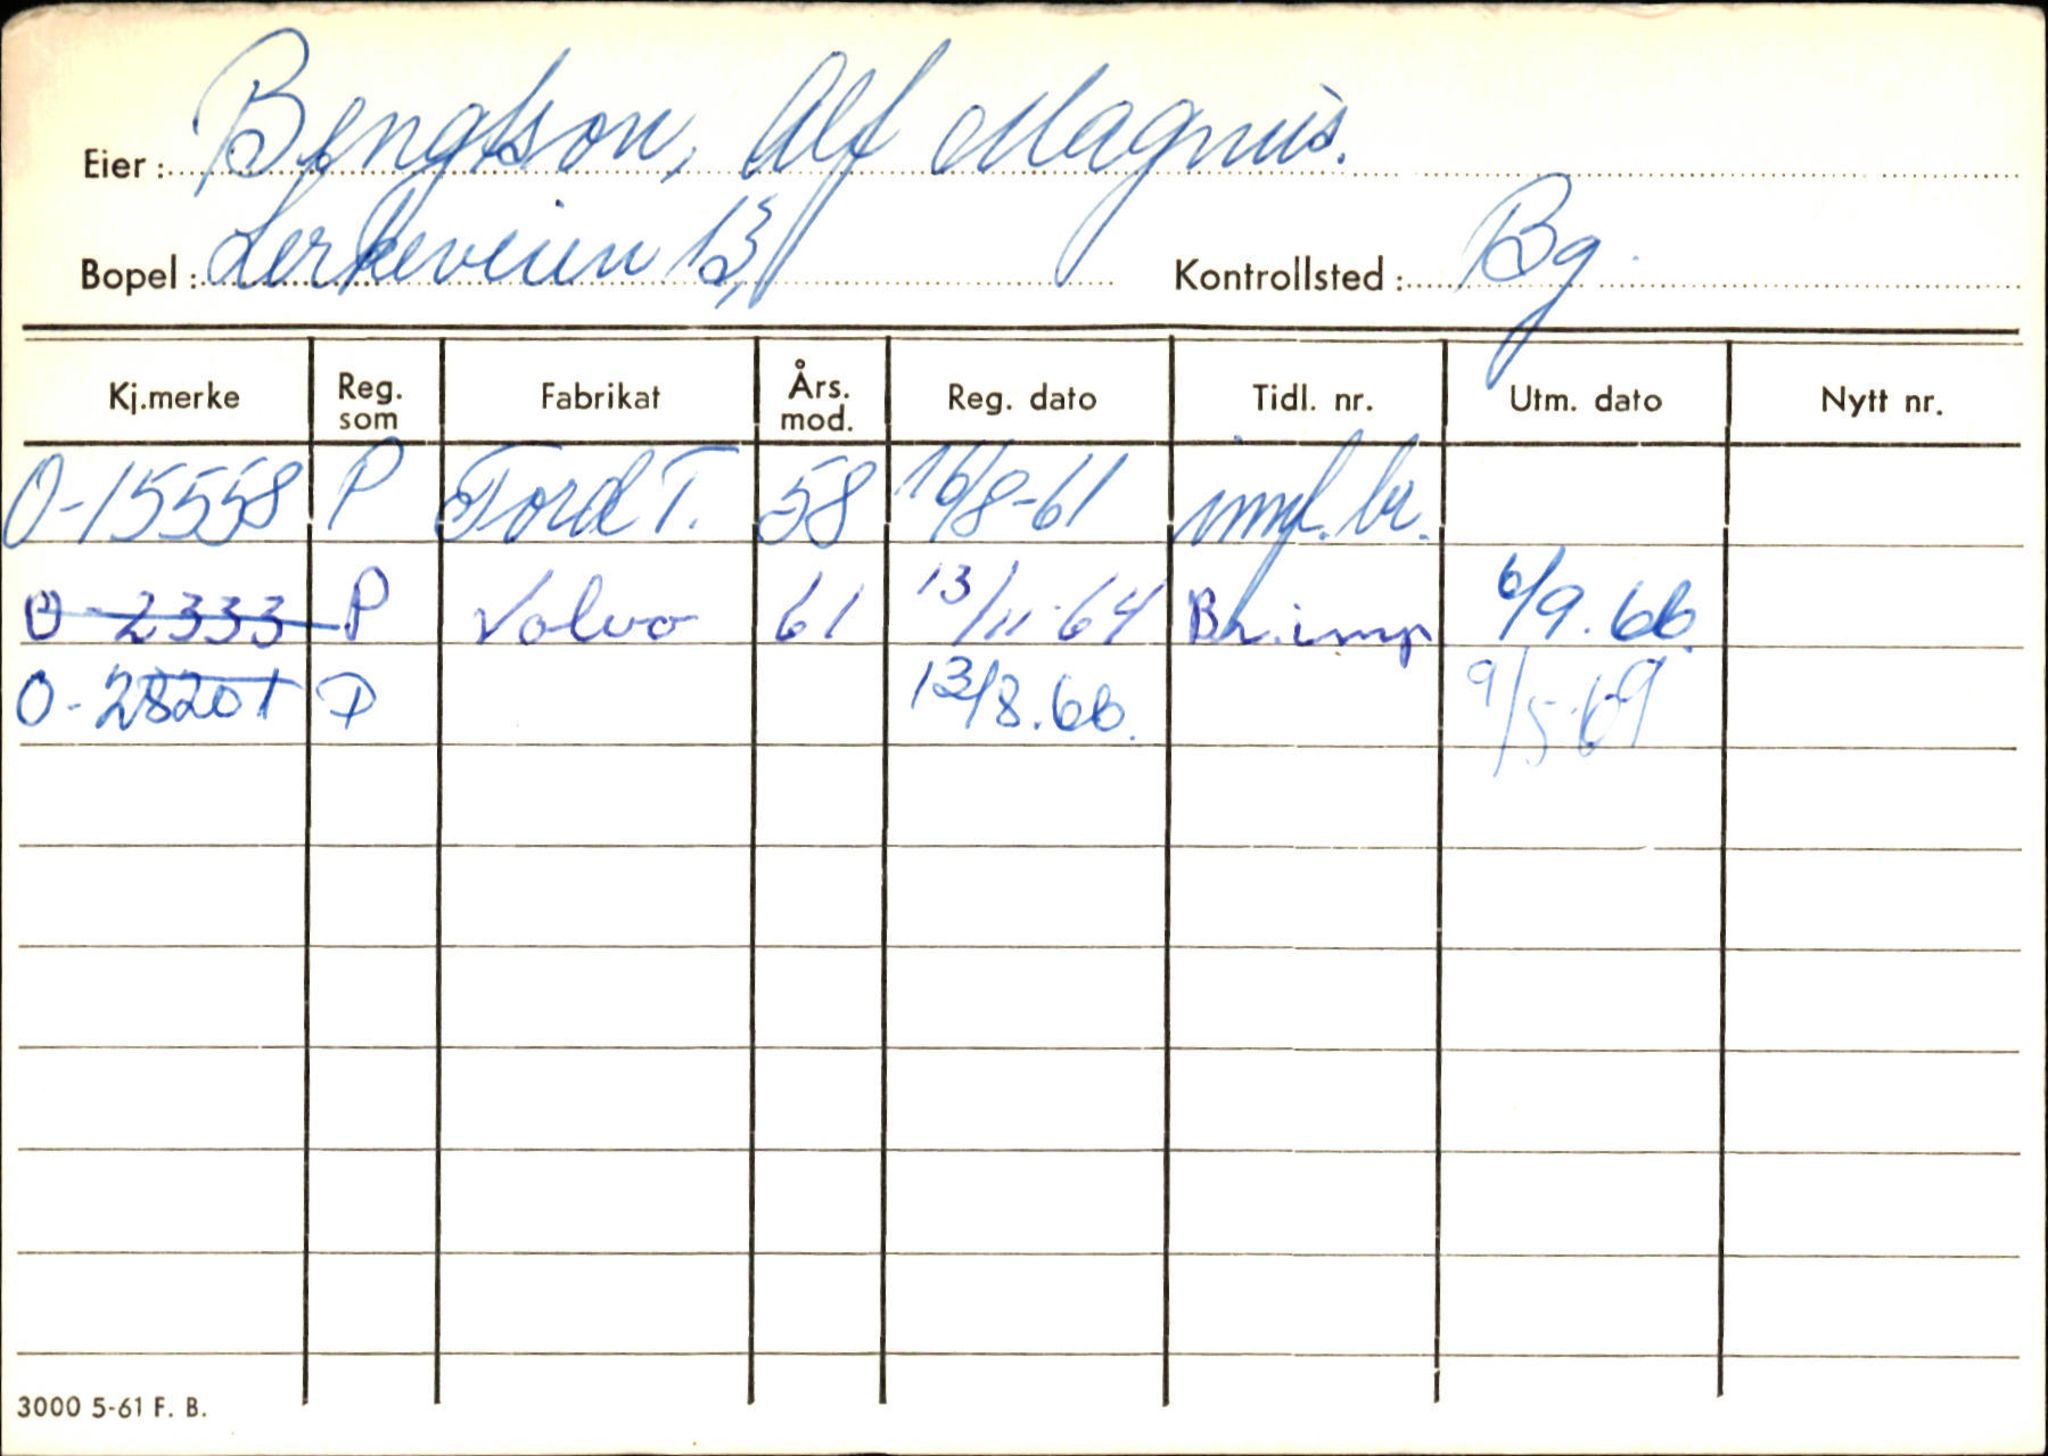 Eier: Bengtson, Alf Magnus.
Bopel: Lerkeveien 13, Kontrollsted: Bg.
Kj.merke Reg. som Fabrikat Års. mod. Reg. dato Tidl. nr. Utm. dato Nytt nr.
O-15558 P Ford T. 58 16/8-61 imp. br.
O-2333 P Volvo 61 13/11-64 Br. imp 6/9.66.
O-28201 P 13/8.66. 9/5-69
3000 5-61 F. B.